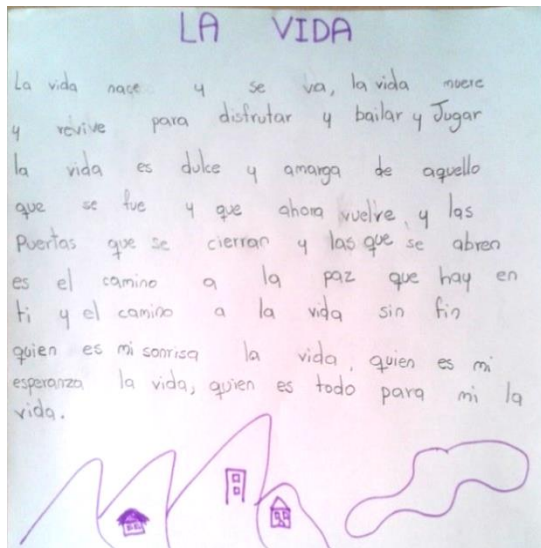 LA VIDA
La vida nace y se va, la vida muere
y revive para disfrutar y bailar y Jugar
la vida es dulce y amarga de aquello
que se fue y que ahora vuelve, y las
Puertas que se cierran y las que se abren
es el camino a la paz que hay en
ti y el camino a la vida sin fin
quien es mi sonrisa la vida, quien es mi
esperanza la vida, quien es todo para mi la
vida.